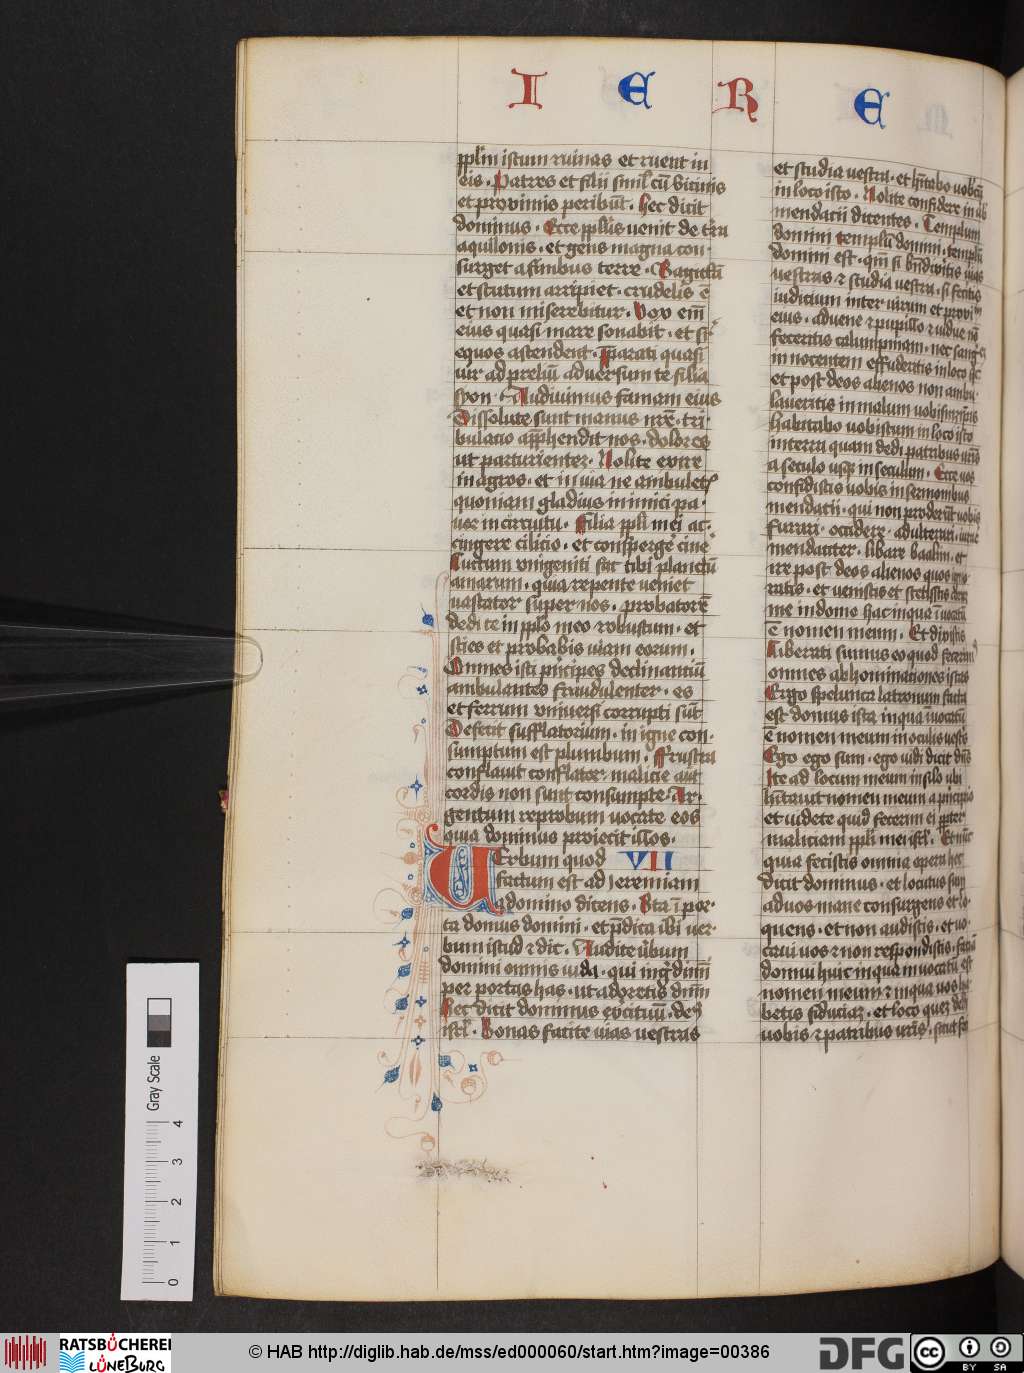 I E R E
pplm istum ruinas et ruent in
eis. Patres et filii simil cū vicinis
et proximis peribūt. Hec dicit
dominus. Ecce pplus venit de tr̄ra
aquilonis. et gens magna con-
surget a finibus terre. Sagittā
et scutum arripiet. crudelis ē
et non miserebitur. Vox eius
quasi mare sonabit. et sr̄
equos ascendent. pparati quasi
vir ad preliū adversum te filia
syon. Audivimus famam eius
Dissolute sunt manus nr̄e. tri
bulacio apphendit nos. dolores
ut parturientem. Nolite exire
in agros. et in via ne ambuletis
quoniam gladius inimici pa-
vor in circuitu. Filia ppli mei ac-
cingere cilicio. et conspergē cine
Luctum unigeniti fac tibi planctū
amarum. quia repente veniet
vastator super nos. probatorē
dedi te in pplo meo robustum. et
scies et probabis viam eorum.
Omnes isti principes declinantiū
ambulantes fraudulenter. es
et ferrum universi corrupti sūt
Defecit sufflatorium. in igne con-
sumptum est plumbum. ffrustra
conflavit conflator malicie aūt
eorum non sunt consumpte. Ar-
gentum reprobum vocate eos
quia dominus proiecit illos.
Verbum quod VII
factum est ad Jeremiam
a domino dicens. Sta ī por-
ta domus domini. et pdica ibi ver-
bum istud et dic. Audite vbum
domini omnis iuda. qui ingdimī
per portas has. ut adoretis dnm
Hec dicit dominus exercituū. deus
isrl. Bonas facite vias vestras
et studia vestra. et hītabo vobcū
in loco isto. Nolite confidere in vb
mendacii dicentes. Templum
domini templū domini. templū
domini est. qm̄ si bn̄dixitis vias
vestras et studia vestra. si fecitis
iudicium inter virum et proximū
eius. advene et pupillo et vidue nō
feceritis calumpniam. nec sangē
innocentem effuderitis in loco hc
et post deos alienos non ambu-
laveritis in malum vobismetipsis
habitabo vobiscum in loco isto
in terra quam dedi patribus vr̄is
a seculo usqz in seculum. Ecce vos
confiditis vobis in sermonibus
mendacii. qui non proderūt vobis
furari. occidere. adulterari. iurare
mendaciter. libare baalim. et
ire post deos alienos quos igno-
ratis. et venistis et stetistis coram
me in domo hac in qua ī vocatū
ē nomen meum. Et dixistis
Liberati sumus eo quod fecerimus
omnes abhominationes istas
Ergo spelunca latronum facta
est domus ista in qua īvocatū
ē nomen meum in oculis vestris
Ego ego sum. ego vidi dicit dn̄s
Ite ad locum meum in silo ubi
hītavit nomen meum a principio
et videte quid fecerim ei ppter
maliciam ppli mei isrl. Et nūc
quia fecistis omnia opera hec
dicit dominus. et locutus sum
ad vos mane consurgens et lo-
quens. et non audistis. et vo-
cavi vos et non respondistis. faciā
domui huic in qua invocatū est
nomen meum et in qua vos ha-
betis fiduciaz. et loco quez dedi
vobis et patribus vr̄is. sicut feci
Gray Scale
0 1 2 3 4
RATSBÜCHEREI
LÜNEBURG
© HAB http://diglib.hab.de/mss/ed000060/start.htm?image=00386
DFG
cc BY SA